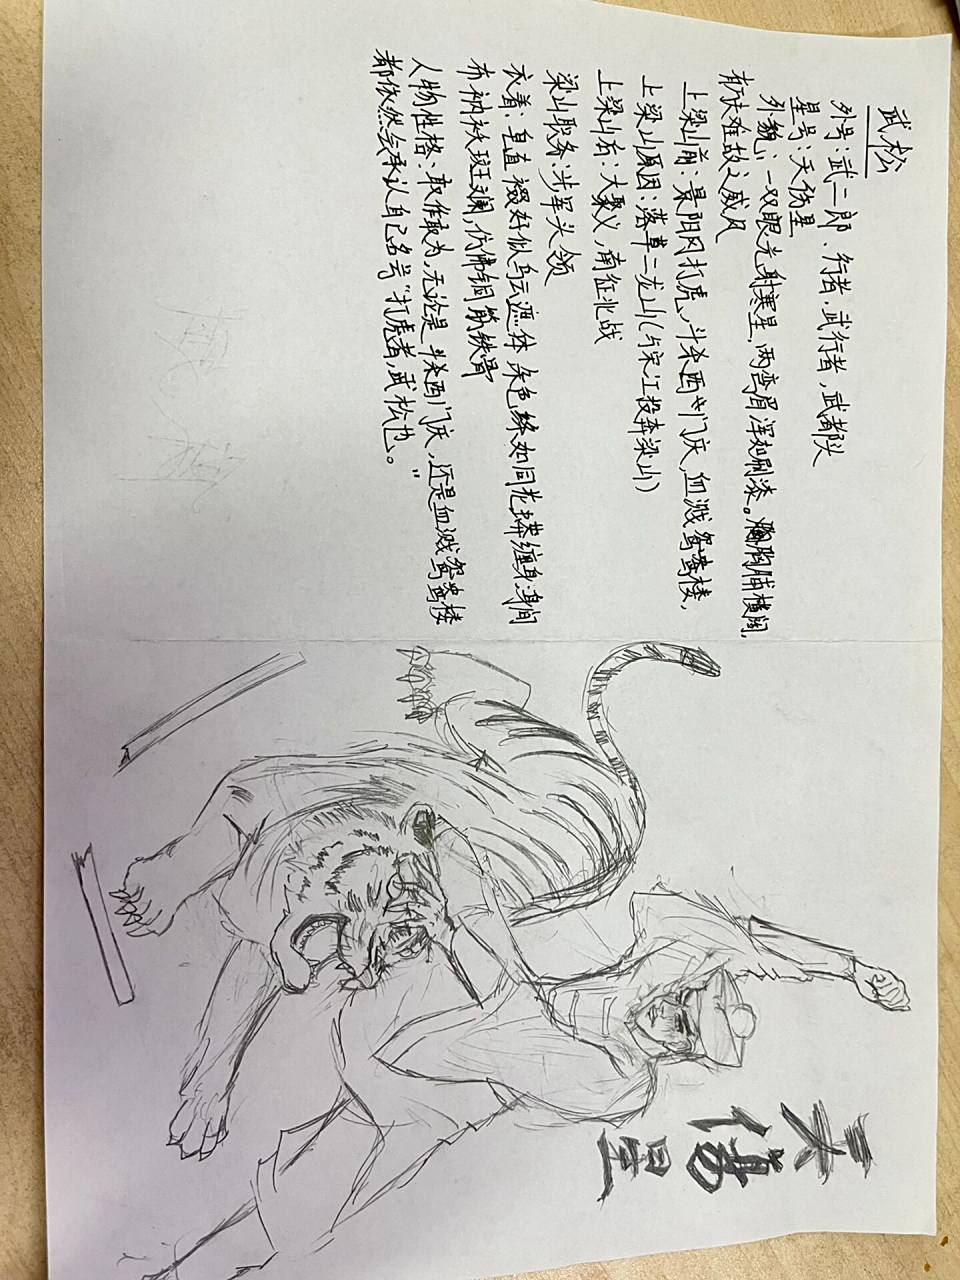 武松
外号：武二郎、行者，武行者，武都头
星号：天伤星
外貌：一双眼光射寒星，两弯眉浑如刷漆。胸脯横阔，
有万夫难敌之威风
上梁山前：景阳冈打虎，斗杀西门庆，血溅鸳鸯楼，
上梁山原因：落草二龙山（与宋江投奔梁山）
上梁山后：大聚义，南征北战
梁山职务：步军头领
衣着：皂直裰好似乌云遮体，杂色绦如同花蟒缠身，身间
布衲袄斑斓，仿佛铜筋铁骨
人物性格：敢作敢为，无论是斗杀西门庆，还是血溅鸳鸯楼
都依然会承认自己名字“打虎者，武松也。”
天伤星